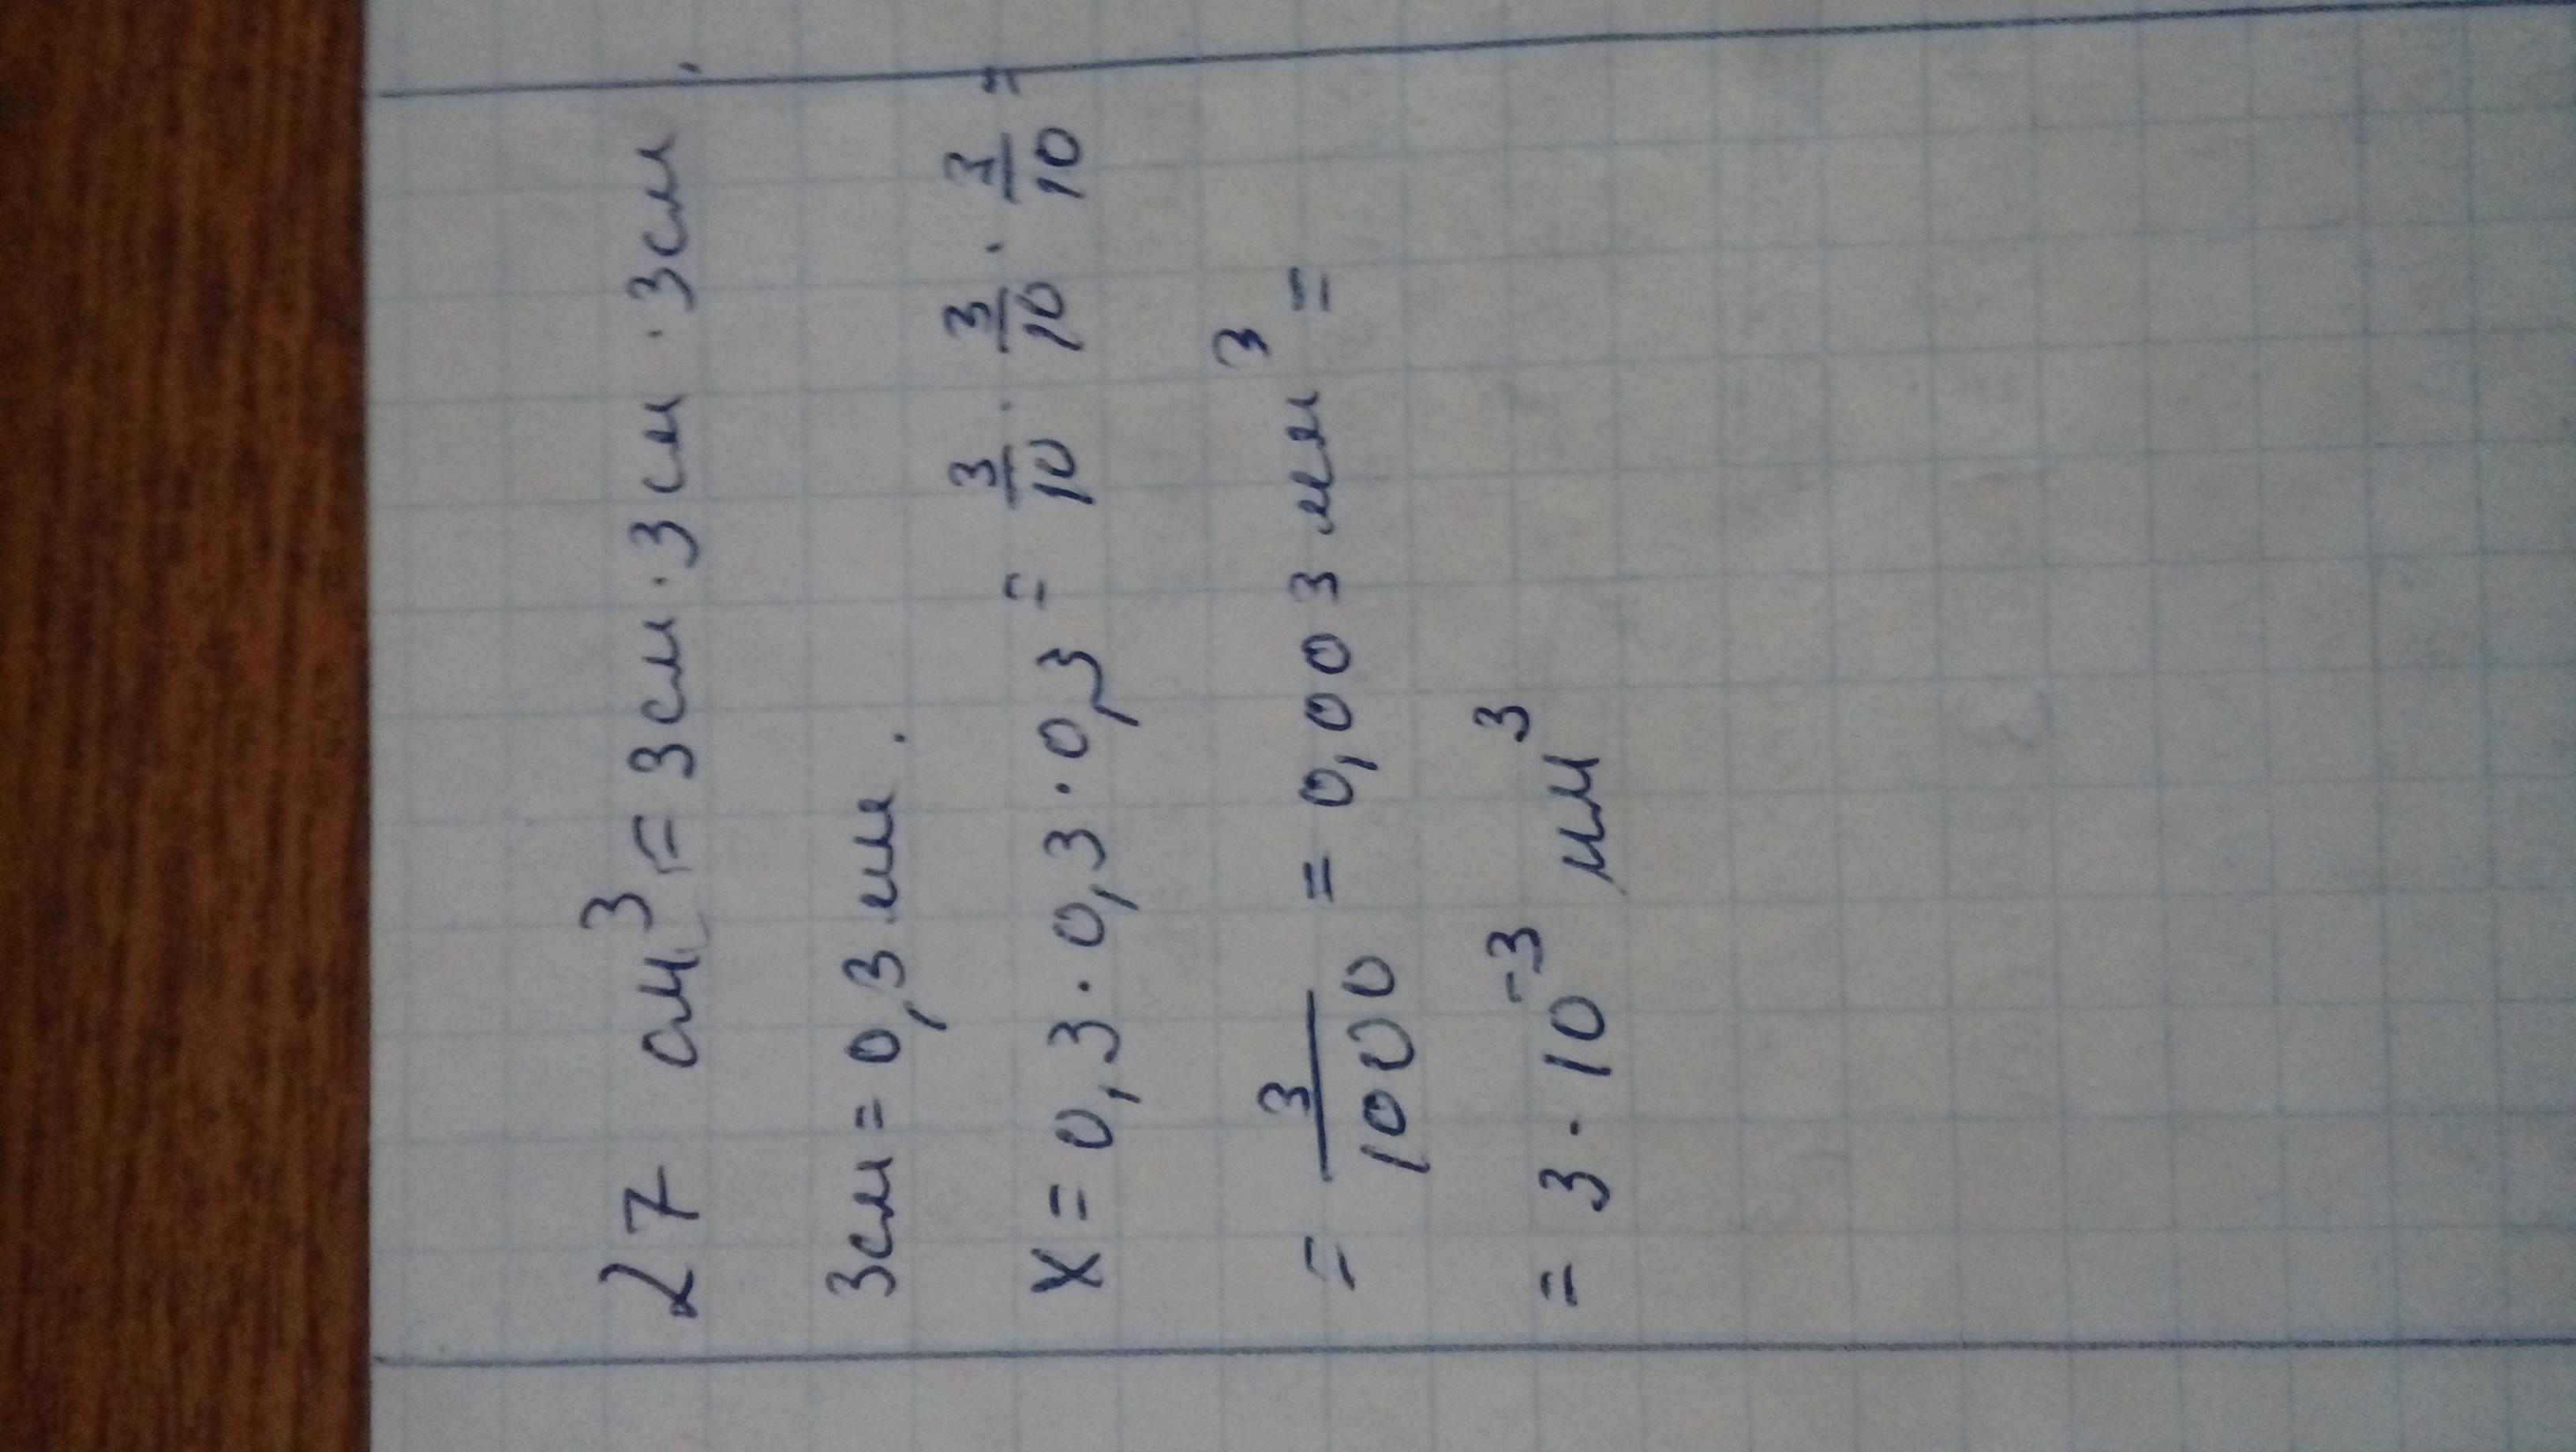 27 см³ = 3см · 3см · 3см.
3см = 0,3 мм.
x = 0,3 · 0,3 · 0,3 = 3/10 · 3/10 · 3/10 =
= 3/1000 = 0,003 мм³ =
= 3 · 10⁻³ мм³